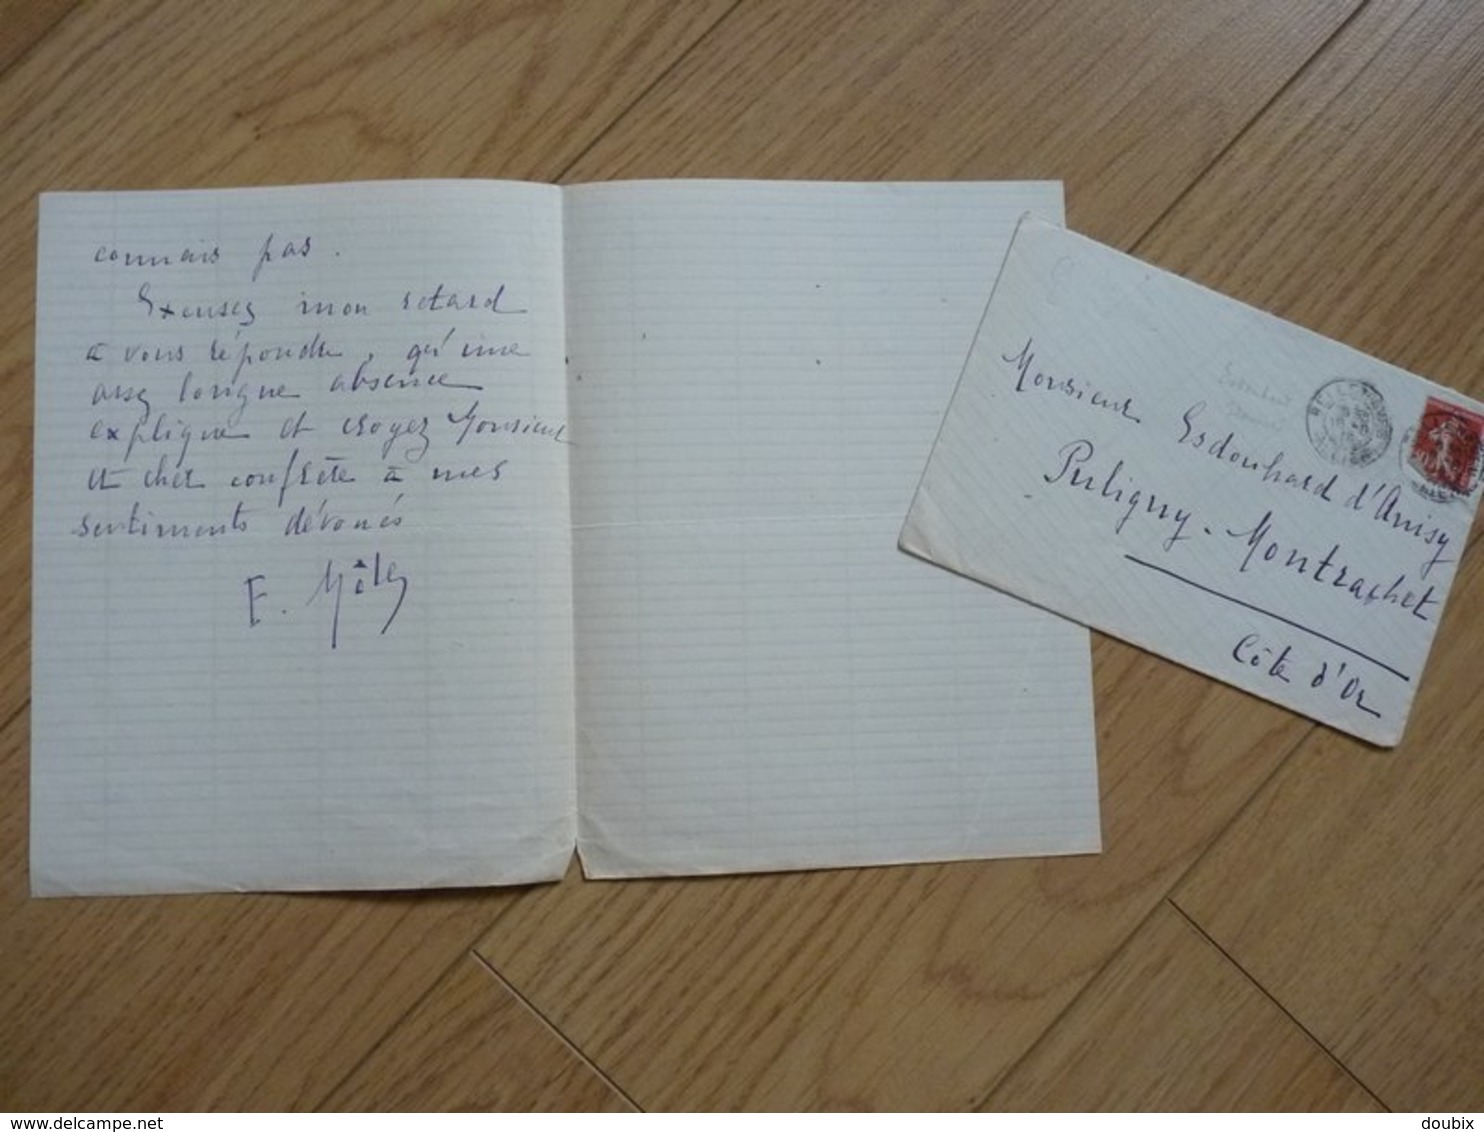 connais pas.
Excusez mon retard
à vous répondre, qu'une
assez longue absence
explique et croyez Monsieur
et cher confrère à mes
sentiments dévoués
Monsieur Esdouhard d'Anisy
Puligny-Montrachet
Côte d'Or
delcampe.net
doubix